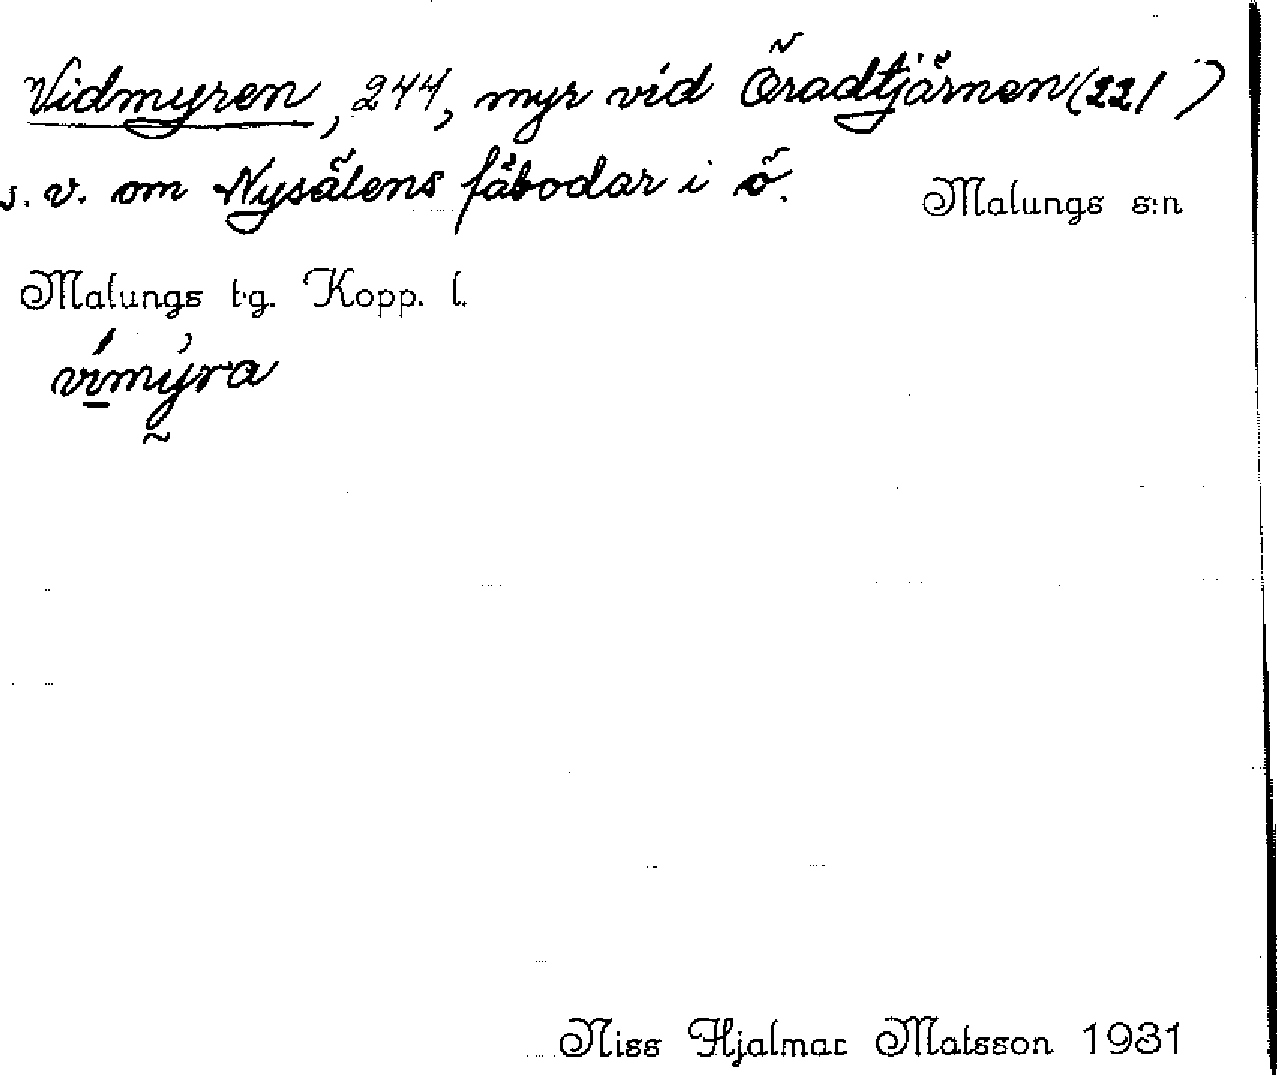 Vidmyren, 244, myr vid Öradtjärnen (221)
s. v. om Nysälens fäbodar i ö. Malungs s:n
Malungs tg. Kopp. l.
vímýra
Niss Hjalmar Matsson 1931